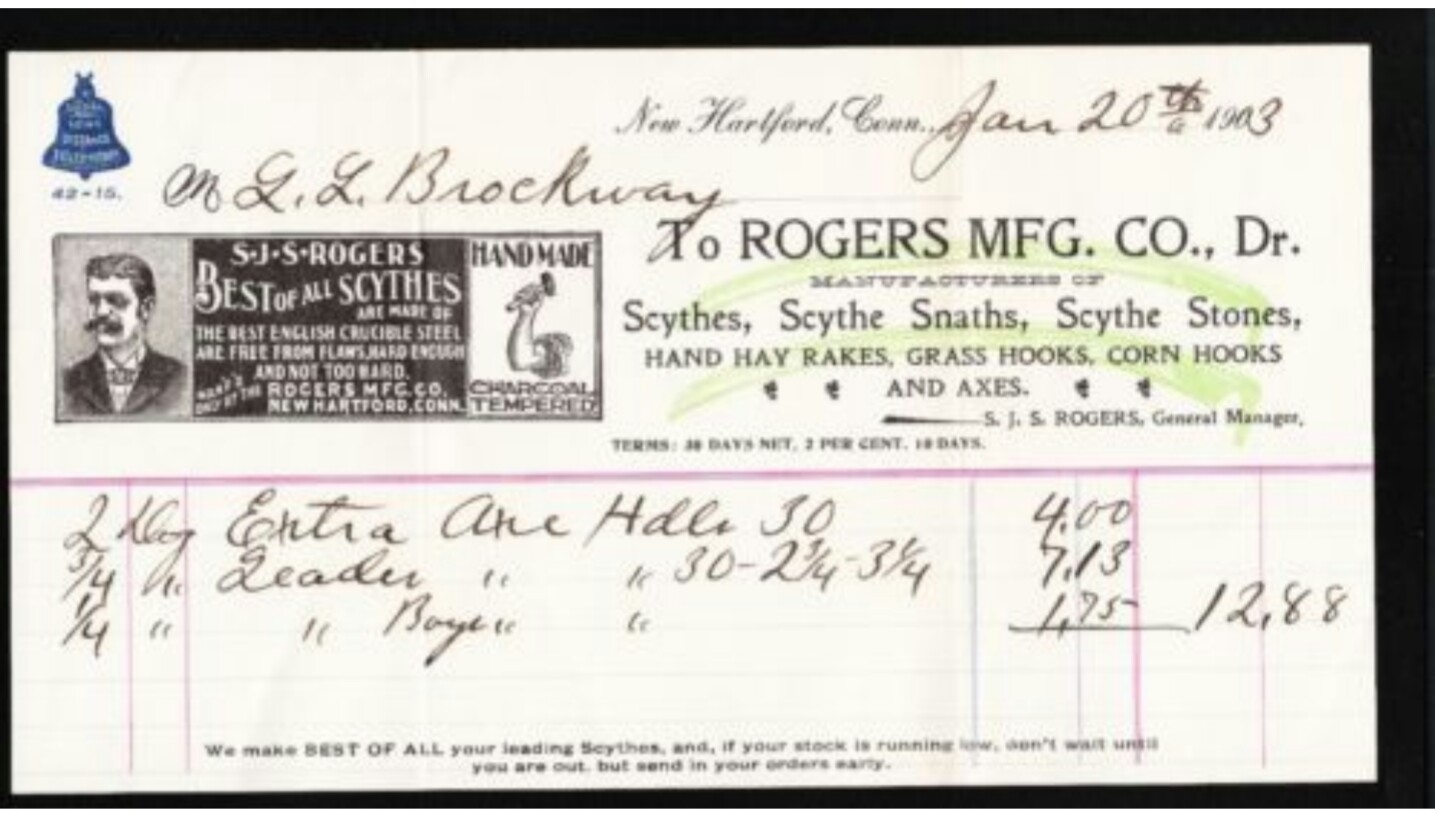 LONG
DISTANCE
TELEPHONE
42-15.
New Hartford, Conn., Jan 20th 1903
M L. L. Brockway
To ROGERS MFG. CO., Dr.
MANUFACTURERS OF
Scythes, Scythe Snaths, Scythe Stones,
HAND HAY RAKES, GRASS HOOKS, CORN HOOKS
AND AXES.
S. J. S. ROGERS, General Manager,
TERMS: 30 DAYS NET, 2 PER CENT. 10 DAYS.
S·J·S·ROGERS
BEST OF ALL SCYTHES
ARE MADE OF
THE BEST ENGLISH CRUCIBLE STEEL
ARE FREE FROM FLAWS, HARD ENOUGH
AND NOT TOO HARD.
ONLY BY THE ROGERS MFG. CO.
NEW HARTFORD, CONN.
HAND MADE
CHARCOAL
TEMPERED
2 Doz Extra Axe Hdls 30 4.00
3/4 " Leader " " 30-2 3/4-3 1/4 7,13
1/4 " " Boys " " 1,75 12,88
We make BEST OF ALL your leading Scythes, and, if your stock is running low, don't wait until
you are out, but send in your orders early.